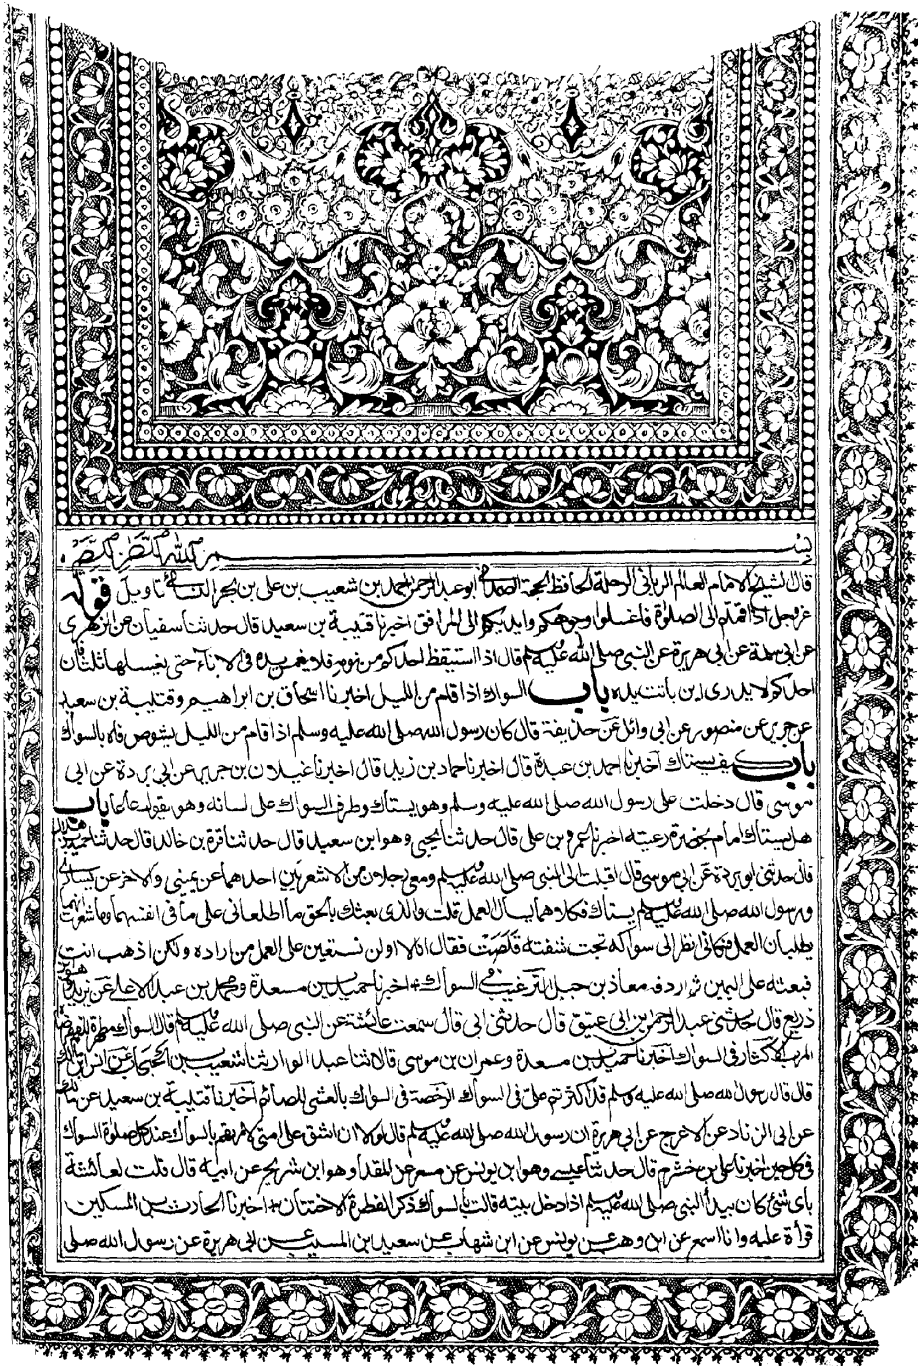 بسم الله الرحمن الرحيم
قال الشيخ الامام العالم الرباني الرحلة الحافظ الحجة الصمداني ابو عبد الرحمن احمد بن شعيب بن علي بن بحر النسائي تاويل قوله
عز وجل اذا قمتم الى الصلوة فاغسلوا وجوهكم وايديكم الى المرافق اخبرنا قتيبة بن سعيد قال حدثنا سفيان عن الزهري
عن ابي سلمة عن ابي هريرة عن النبي صلى الله عليه وسلم قال اذا استيقظ احدكم من نومه فلا يغمس يده في الاناء حتى يغسلها ثلثا فان
احدكم لا يدرى اين باتت يده باب السواك اذا قام من الليل اخبرنا اسحاق بن ابراهيم وقتيبة بن سعيد
عن جرير عن منصور عن ابي وائل عن حذيفة قال كان رسول الله صلى الله عليه وسلم اذا قام من الليل يشوص فاه بالسواك
باب كيف يستاك اخبرنا احمد بن عبدة قال اخبرنا حماد بن زيد قال اخبرنا غيلان بن جرير عن ابي بردة عن ابي
موسى قال دخلت على رسول الله صلى الله عليه وسلم وهو يستاك وطرف السواك على لسانه وهو يقول عا عا باب
هل يستاك الامام بحضرة رعيته اخبرنا عمرو بن علي قال حدثنا يحيى وهو ابن سعيد قال حدثنا قرة بن خالد قال حدثنا حميد بن هلال
قال حدثني ابو بردة عن ابي موسى قال اقبلت الى النبي صلى الله عليه وسلم ومعي رجلان من الاشعريين احدهما عن يميني والاخر عن يساري
ورسول الله صلى الله عليه وسلم يستاك فكلاهما يسال العمل قلت والذي بعثك بالحق ما اطلعاني على ما في انفسهما وما شعرت انهما
يطلبان العمل فكاني انظر الى سواكه تحت شفته قلصت فقال انا لا او لن نستعين على العمل من اراده ولكن اذهب انت
فبعثه على اليمن ثم اردفه معاذ بن جبل الترغيب في السواك اخبرنا حميد بن مسعدة ومحمد بن عبد الاعلى عن يزيد وهو ابن
زريع قال حدثني عبد الرحمن بن ابي عتيق قال حدثني ابي قال سمعت عائشة عن النبي صلى الله عليه وسلم قال السواك مطهرة للفم مرضاة
للرب الاكثار في السواك اخبرنا حميد بن مسعدة وعمران بن موسى قالا ثنا عبد الوارث ثنا شعيب بن الحبحاب عن انس بن مالك
قال قال رسول الله صلى الله عليه وسلم قد اكثرتم علي في السواك الرخصة في السواك بالعشي للصائم اخبرنا قتيبة بن سعيد عن مالك
عن ابي الزناد عن الاعرج عن ابي هريرة ان رسول الله صلى الله عليه وسلم قال لولا ان اشق على امتي لامرتهم بالسواك عند كل صلوة السواك
في كل حين اخبرنا علي بن خشرم قال حدثنا عيسى وهو ابن يونس عن مسعر عن المقدام وهو ابن شريح عن ابيه قال قلت لعائشة
باي شئ كان يبدأ النبي صلى الله عليه وسلم اذا دخل بيته قالت بالسواك ذكر الفطرة الاختتان اخبرنا الحارث بن المسكين
قرأة عليه وانا اسمع عن ابن وهب عن يونس عن ابن شهاب عن سعيد ابن المسيب عن ابي هريرة عن رسول الله صلى